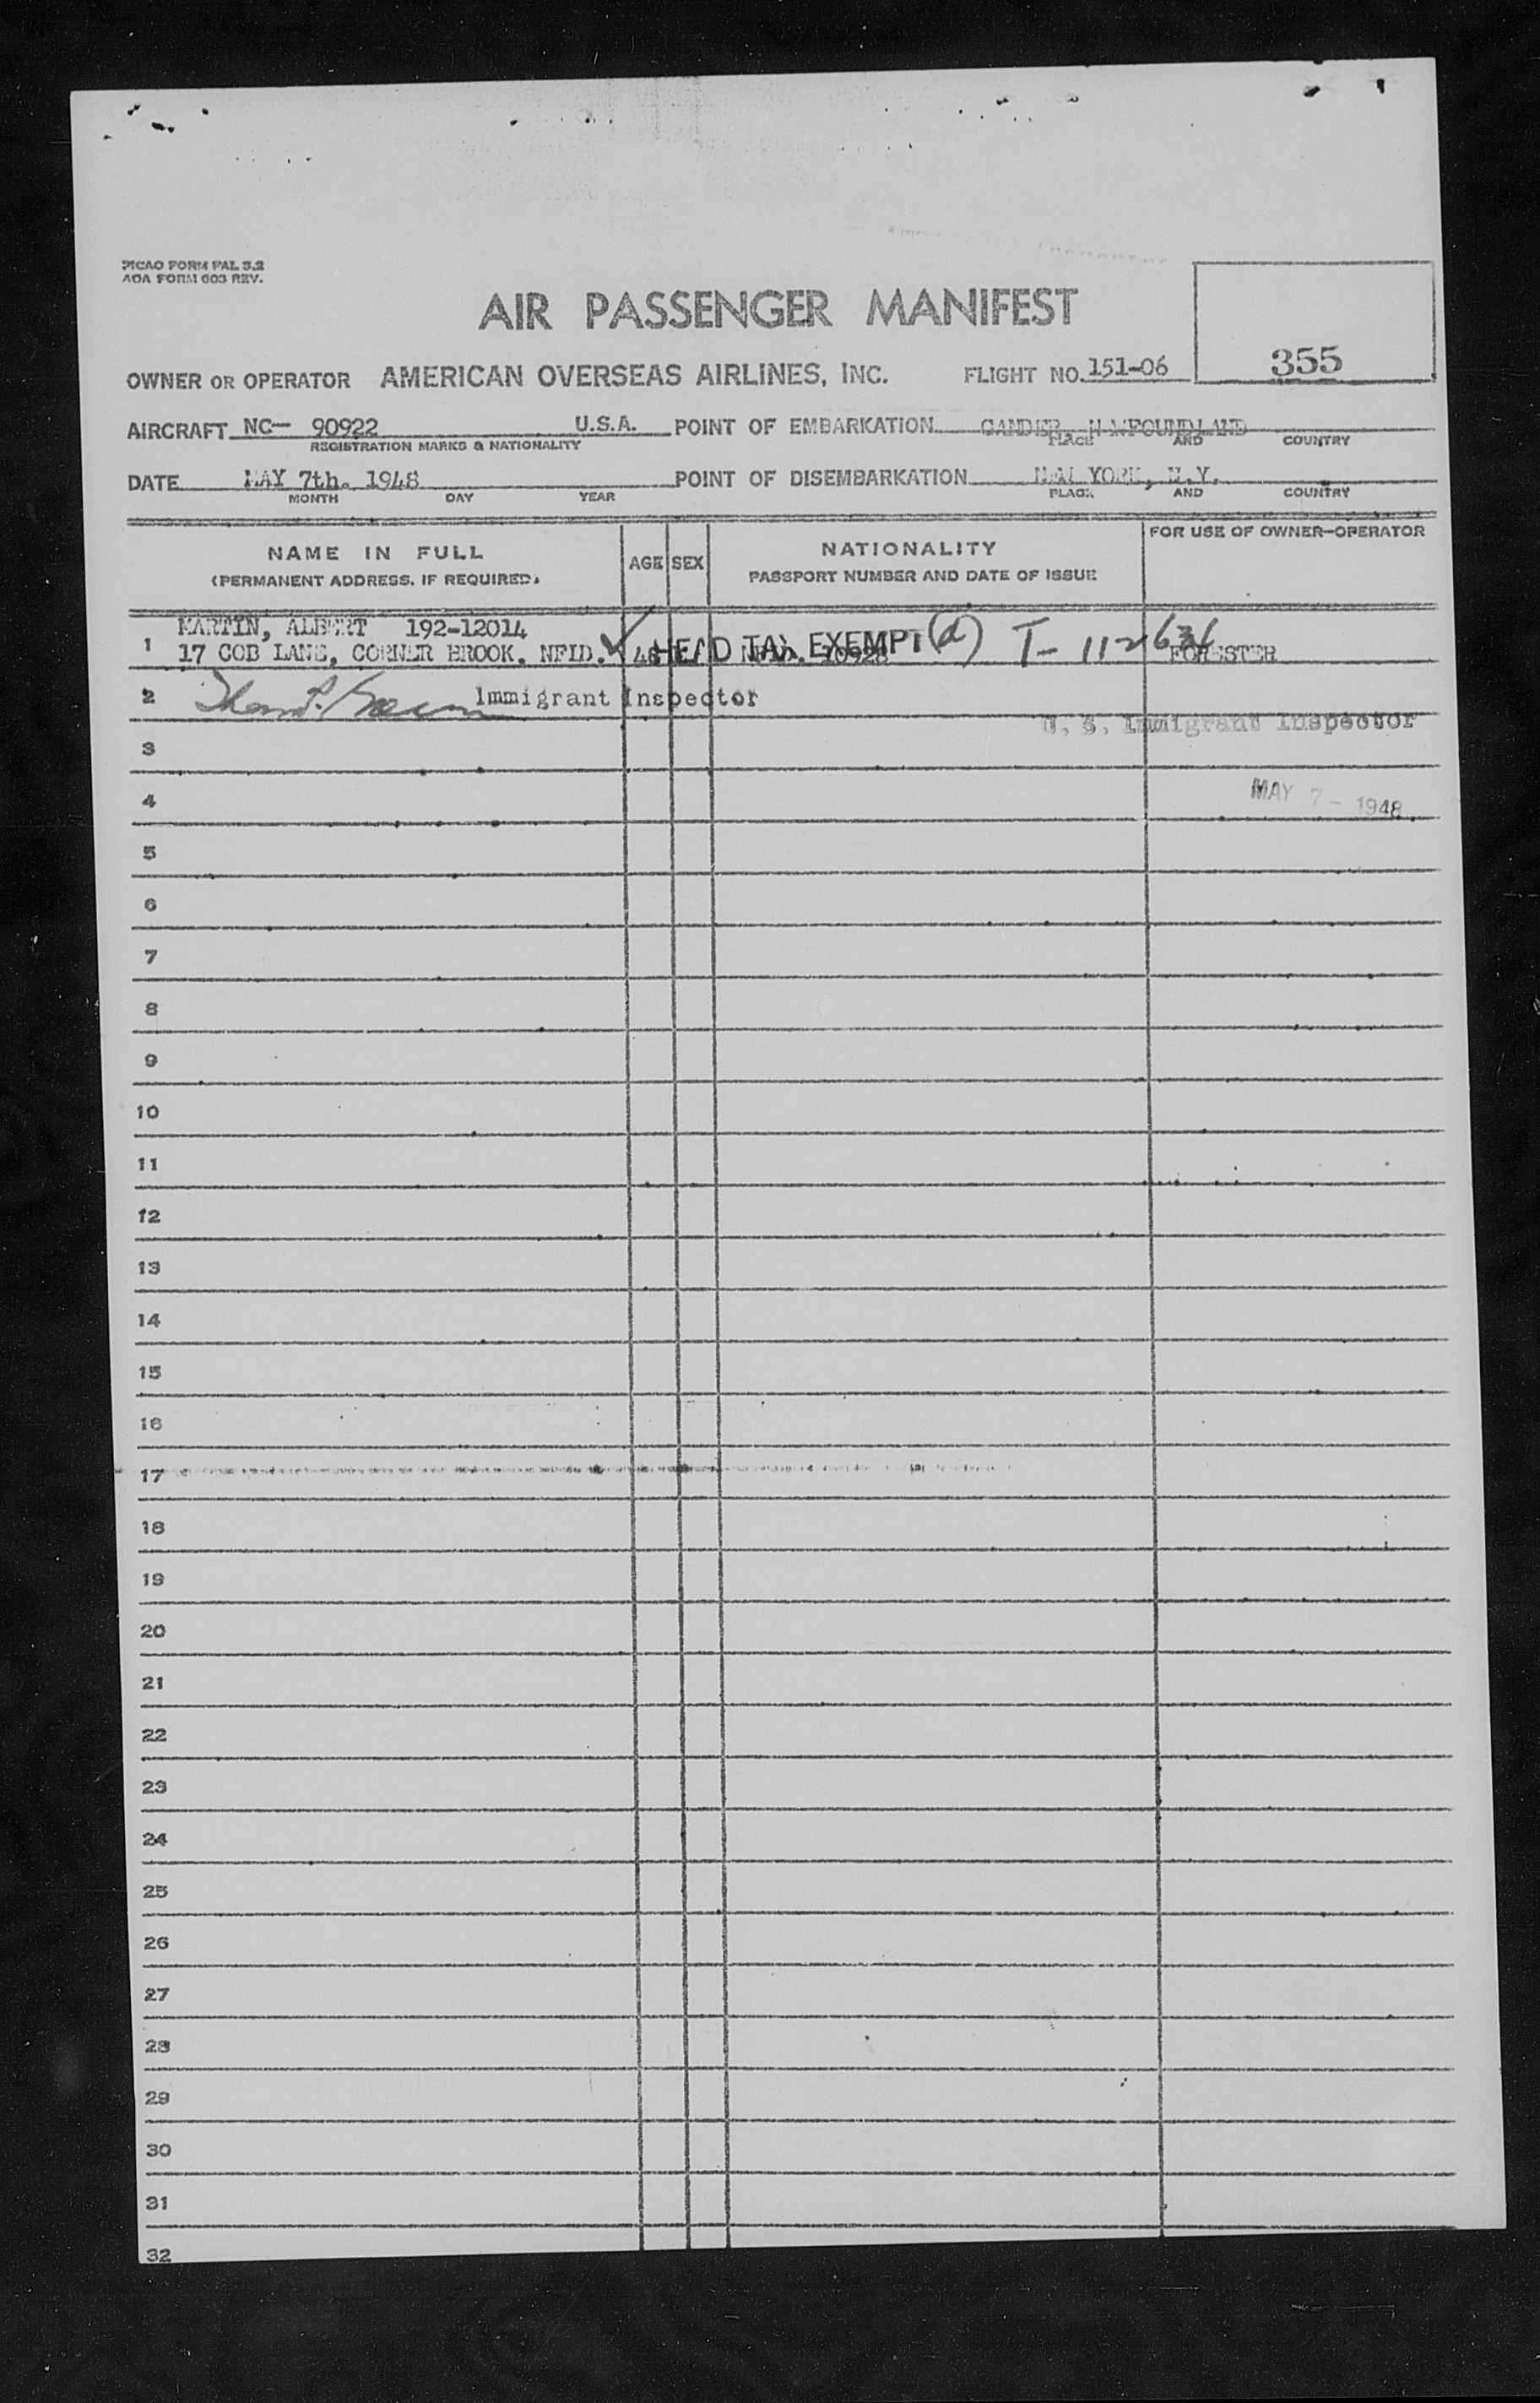 PICAO FORM PAL 3.2
AOA FORM 603 REV.
AIR PASSENGER MANIFEST
355
OWNER OR OPERATOR AMERICAN OVERSEAS AIRLINES, INC. FLIGHT NO. 151-06
AIRCRAFT NC- 90922 U.S.A. POINT OF EMBARKATION GANDER, NEWFOUNDLAND
REGISTRATION MARKS & NATIONALITY PLACE AND COUNTRY
DATE MAY 7th. 1948 POINT OF DISEMBARKATION NEW YORK, N.Y.
MONTH DAY YEAR PLACE AND COUNTRY
NAME IN FULL
(PERMANENT ADDRESS, IF REQUIRED)
AGE SEX
NATIONALITY
PASSPORT NUMBER AND DATE OF ISSUE
FOR USE OF OWNER-OPERATOR
1 MARTIN, ALBERT 192-12014
17 COB LANE, CORNER BROOK, NFLD. HEAD TAX EXEMPT (d) T- 112636 FORESTER
2 Immigrant Inspector
U. S. Immigrant Inspector
3
4 MAY 7 - 1948
5
6
7
8
9
10
11
12
13
14
15
16
17
18
19
20
21
22
23
24
25
26
27
28
29
30
31
32